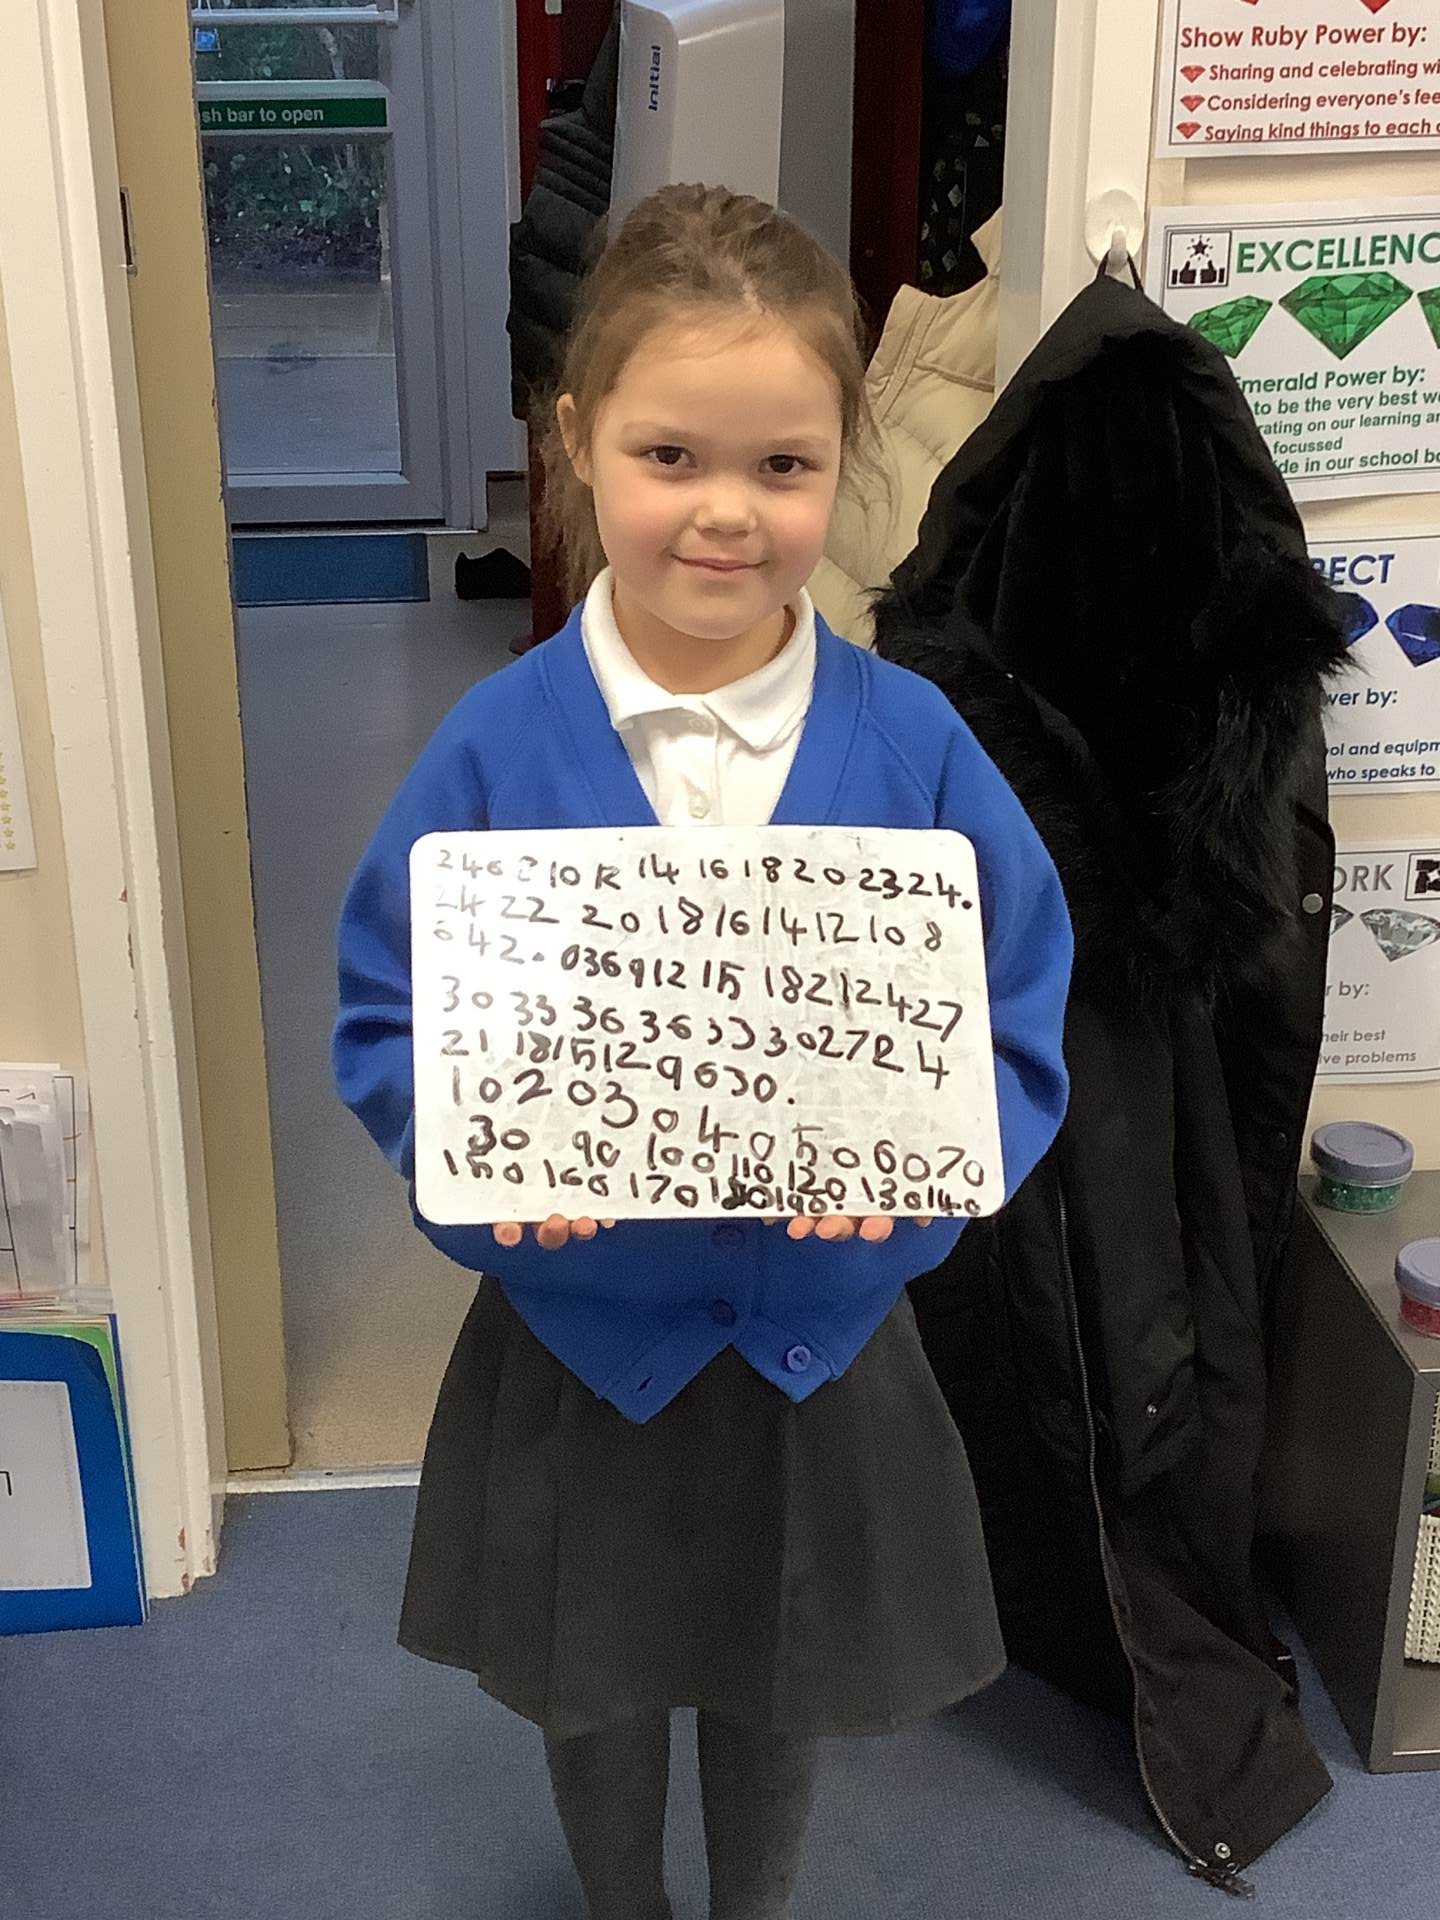 sh bar to open
Initial
Show Ruby Power by:
Sharing and celebrating wi
Considering everyone's fee
Saying kind things to each
EXCELLENC
merald Power by:
to be the very best w
rating on our learning a
focussed
de in our school b
PECT
wer by:
ol and equipm
who speaks to
ORK
r by:
heir best
ive problems
2 4 6 8 10 12 14 16 18 20 223 24.
24 22 20 18 16 14 12 10 8
6 4 2. 0 3 6 9 12 15 18 21 24 27
30 33 36 36 33 30 27 24
21 18 15 12 9 6 3 0.
10 20 30 40 50 60 70
80 90 100 110 120 130 140
150 160 170 180 190.